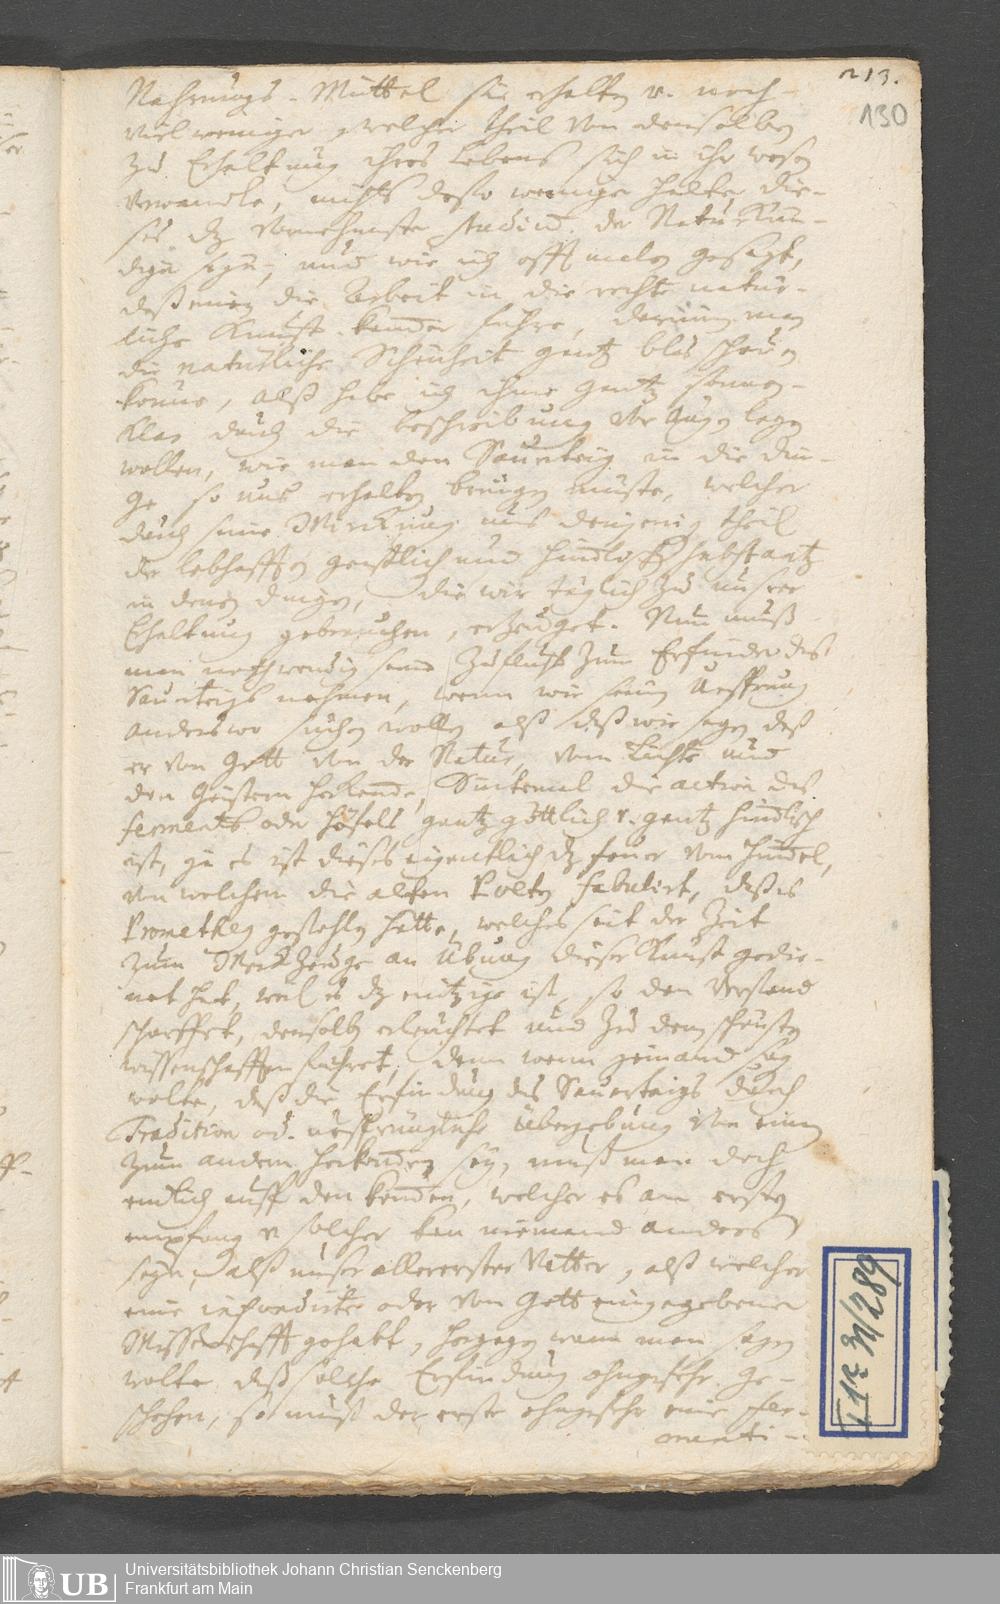 213.
130
Nahrungs-Mittel sie erhalten u. noch
viel weniger welcher theil von denselben
zu Erhaltung ihres Lebens sich in ihr wesen
verwandle, nichts desto weniger halte die-
ses dz vornehmste studium der Naturkün-
diger seyn, und wie ich offtmalen gesagt,
daß einen die Arbeit in die rechte natür-
liche Kunst-kamer führe, darinn man
die natürliche Schönheit gantz blos schauen
könne, alß habe ich ihme gantz sonnen-
klar durch die beschreibung vor Augen legen
wollen, wie man den Sauerteig in die Din-
ge so uns erhalten bringen müste, welcher
durch seine Wirkung uns denjenigen theil
der lebhafften geistlich und himlischen substantz
in denen dingen, die wir täglich zu unserer
Erhaltung gebrauchen, erzeuget. Nun muß
man nothwendig seine Zuflucht zum Erfinder des
Sauerteigs nehmen, wenn wir seinen Ursprung
anderswo suchen wollen alß daß wir sagen daß
er von Gott von der Natur, vom Lichte und
den Geistern herkomme, Sintemal die action des
ferments oder Höfels gantz göttlich u. gantz himlisch
ist, ja es ist dieses eigentlich dz feuer vom Himmel,
von welchem die alten Poëten fabulirt, daß es
Prometheus gestohlen hätte, welches seit der Zeit
zum Werckzeuge an Übung dieser Kunst gedie-
net hat, weil es dz eintzige ist, so den Verstand
schärffet, denselben erleuchtet und zu den schönsten
wissenschafften führet, denn wenn jemand sagen
wolte, daß die Erfindung des Sauerteigs durch
Tradition od. ursprüngliche Übergebung von einem
zum andern herkommen sey, muß man doch
endlich auff den kommen, welcher es am ersten
empfangen solcher kan niemand anders
seyn, alß unser allererster Vatter, alß welcher
eine oder von Gott eingegebene
Wissenschafft gehabt, hergegen wann man sagen
wolte daß solche Erfindung ohngefehr ge-
schehen, so muß der erste ohngefehr eine fer-
menti-
UB
Universitätsbibliothek Johann Christian Senckenberg
Frankfurt am Main